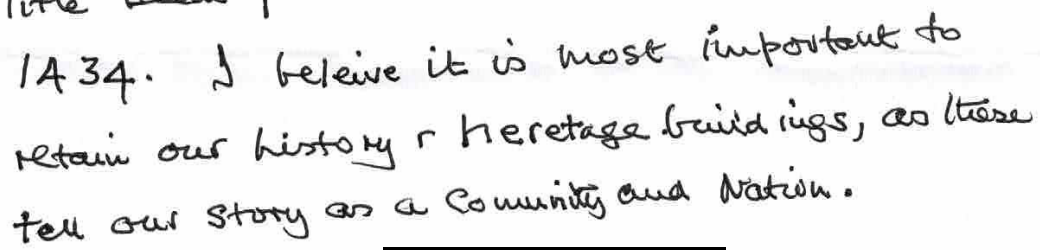 1A34. I beleive it is most important to
retain our history r heretage buildings, as these
tell our story as a Comunity and Nation.